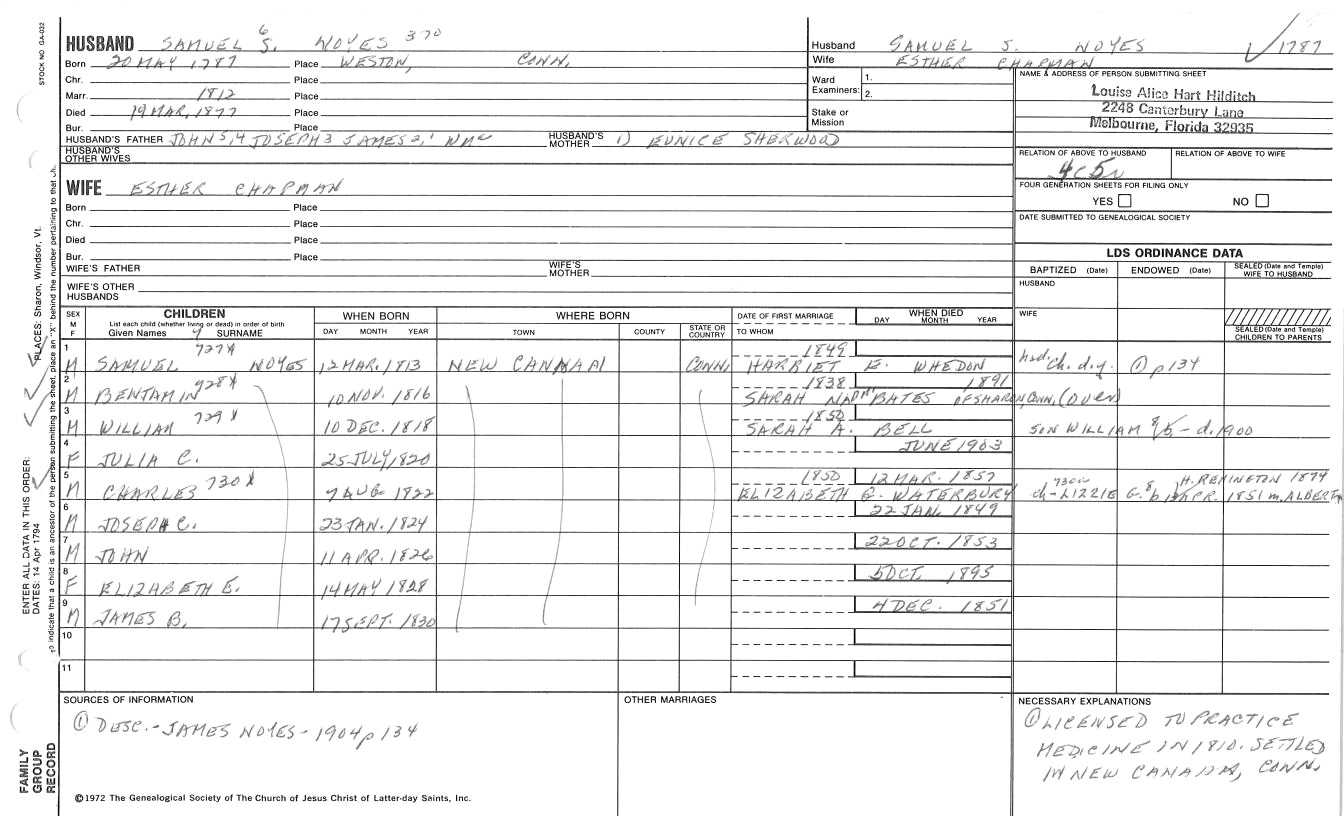 STOCK NO. GA-032
HUSBAND SAMUEL 6 S. NOYES 370
Born 20 MAY 1787 Place WESTON, CONN.
Chr. Place
Marr. 1812 Place
Died 19 MAR, 1877 Place
Bur. Place
HUSBAND'S FATHER JOHN 5,4 JOSEPH 3 JAMES 2,1 WM HUSBAND'S MOTHER 1) EUNICE SHERWOOD
HUSBAND'S OTHER WIVES
Husband SAMUEL S. NOYES 1787
Wife ESTHER CHAPMAN
Ward Examiners: 1.
2.
Stake or Mission
NAME & ADDRESS OF PERSON SUBMITTING SHEET
Louise Alice Hart Hilditch
2248 Canterbury Lane
Melbourne, Florida 32935
RELATION OF ABOVE TO HUSBAND RELATION OF ABOVE TO WIFE
4C5R
FOUR GENERATION SHEETS FOR FILING ONLY
YES NO
DATE SUBMITTED TO GENEALOGICAL SOCIETY
WIFE ESTHER CHAPMAN
Born Place
Chr. Place
Died Place
Bur. Place
WIFE'S FATHER WIFE'S MOTHER
WIFE'S OTHER HUSBANDS
LDS ORDINANCE DATA
BAPTIZED (Date) ENDOWED (Date) SEALED (Date and Temple) WIFE TO HUSBAND
HUSBAND
WIFE
SEALED (Date and Temple) CHILDREN TO PARENTS
SEX M F
CHILDREN
List each child (whether living or dead) in order of birth
Given Names 7 SURNAME
WHEN BORN
DAY MONTH YEAR
WHERE BORN
TOWN COUNTY STATE OR COUNTRY
DATE OF FIRST MARRIAGE
TO WHOM
WHEN DIED
DAY MONTH YEAR
1 727X 1849
M SAMUEL NOYES 12 MAR. 1813 NEW CANNAAN CONN. HARRIET E. WHEDON had. ch. d.y. ① p 134
2 728X 1838 1891
M BENJAMIN 10 NOV. 1816 SARAH BATES OF SHARON CONN. (OVER)
3 729X 1850
M WILLIAM 10 DEC. 1818 SARAH A. BELL SON WILLIAM 8/5 - d. 1900
4 JUNE 1903
F JULIA C. 25 JULY, 1820
5 730X 1850 12 MAR. 1857 730a H. REMINGTON 1874
M CHARLES 7 AUG. 1822 ELIZABETH E. WATERBURY ch - LIZZIE G. 8 b APR. 1851 m. ALBERT
6 22 JAN. 1849
M JOSEPH C. 23 JAN. 1824
7 22 OCT. 1853
M JOHN 11 APR. 1826
8 5 OCT. 1895
F ELIZABETH E. 14 MAY 1828
9 4 DEC. 1851
M JAMES B. 17 SEPT. 1830
10
11
SOURCES OF INFORMATION
① DESC. - JAMES NOYES - 1904 p 134
OTHER MARRIAGES
NECESSARY EXPLANATIONS
① LICENSED TO PRACTICE
MEDICINE IN 1810. SETTLED
IN NEW CANAAN, CONN.
©1972 The Genealogical Society of The Church of Jesus Christ of Latter-day Saints, Inc.
FAMILY GROUP RECORD
ENTER ALL DATA IN THIS ORDER:
DATES: 14 Apr 1794
PLACES: Sharon, Windsor, Vt.
To indicate that a child is an ancestor of the person submitting the sheet, place an "X" behind the number pertaining to that ch.